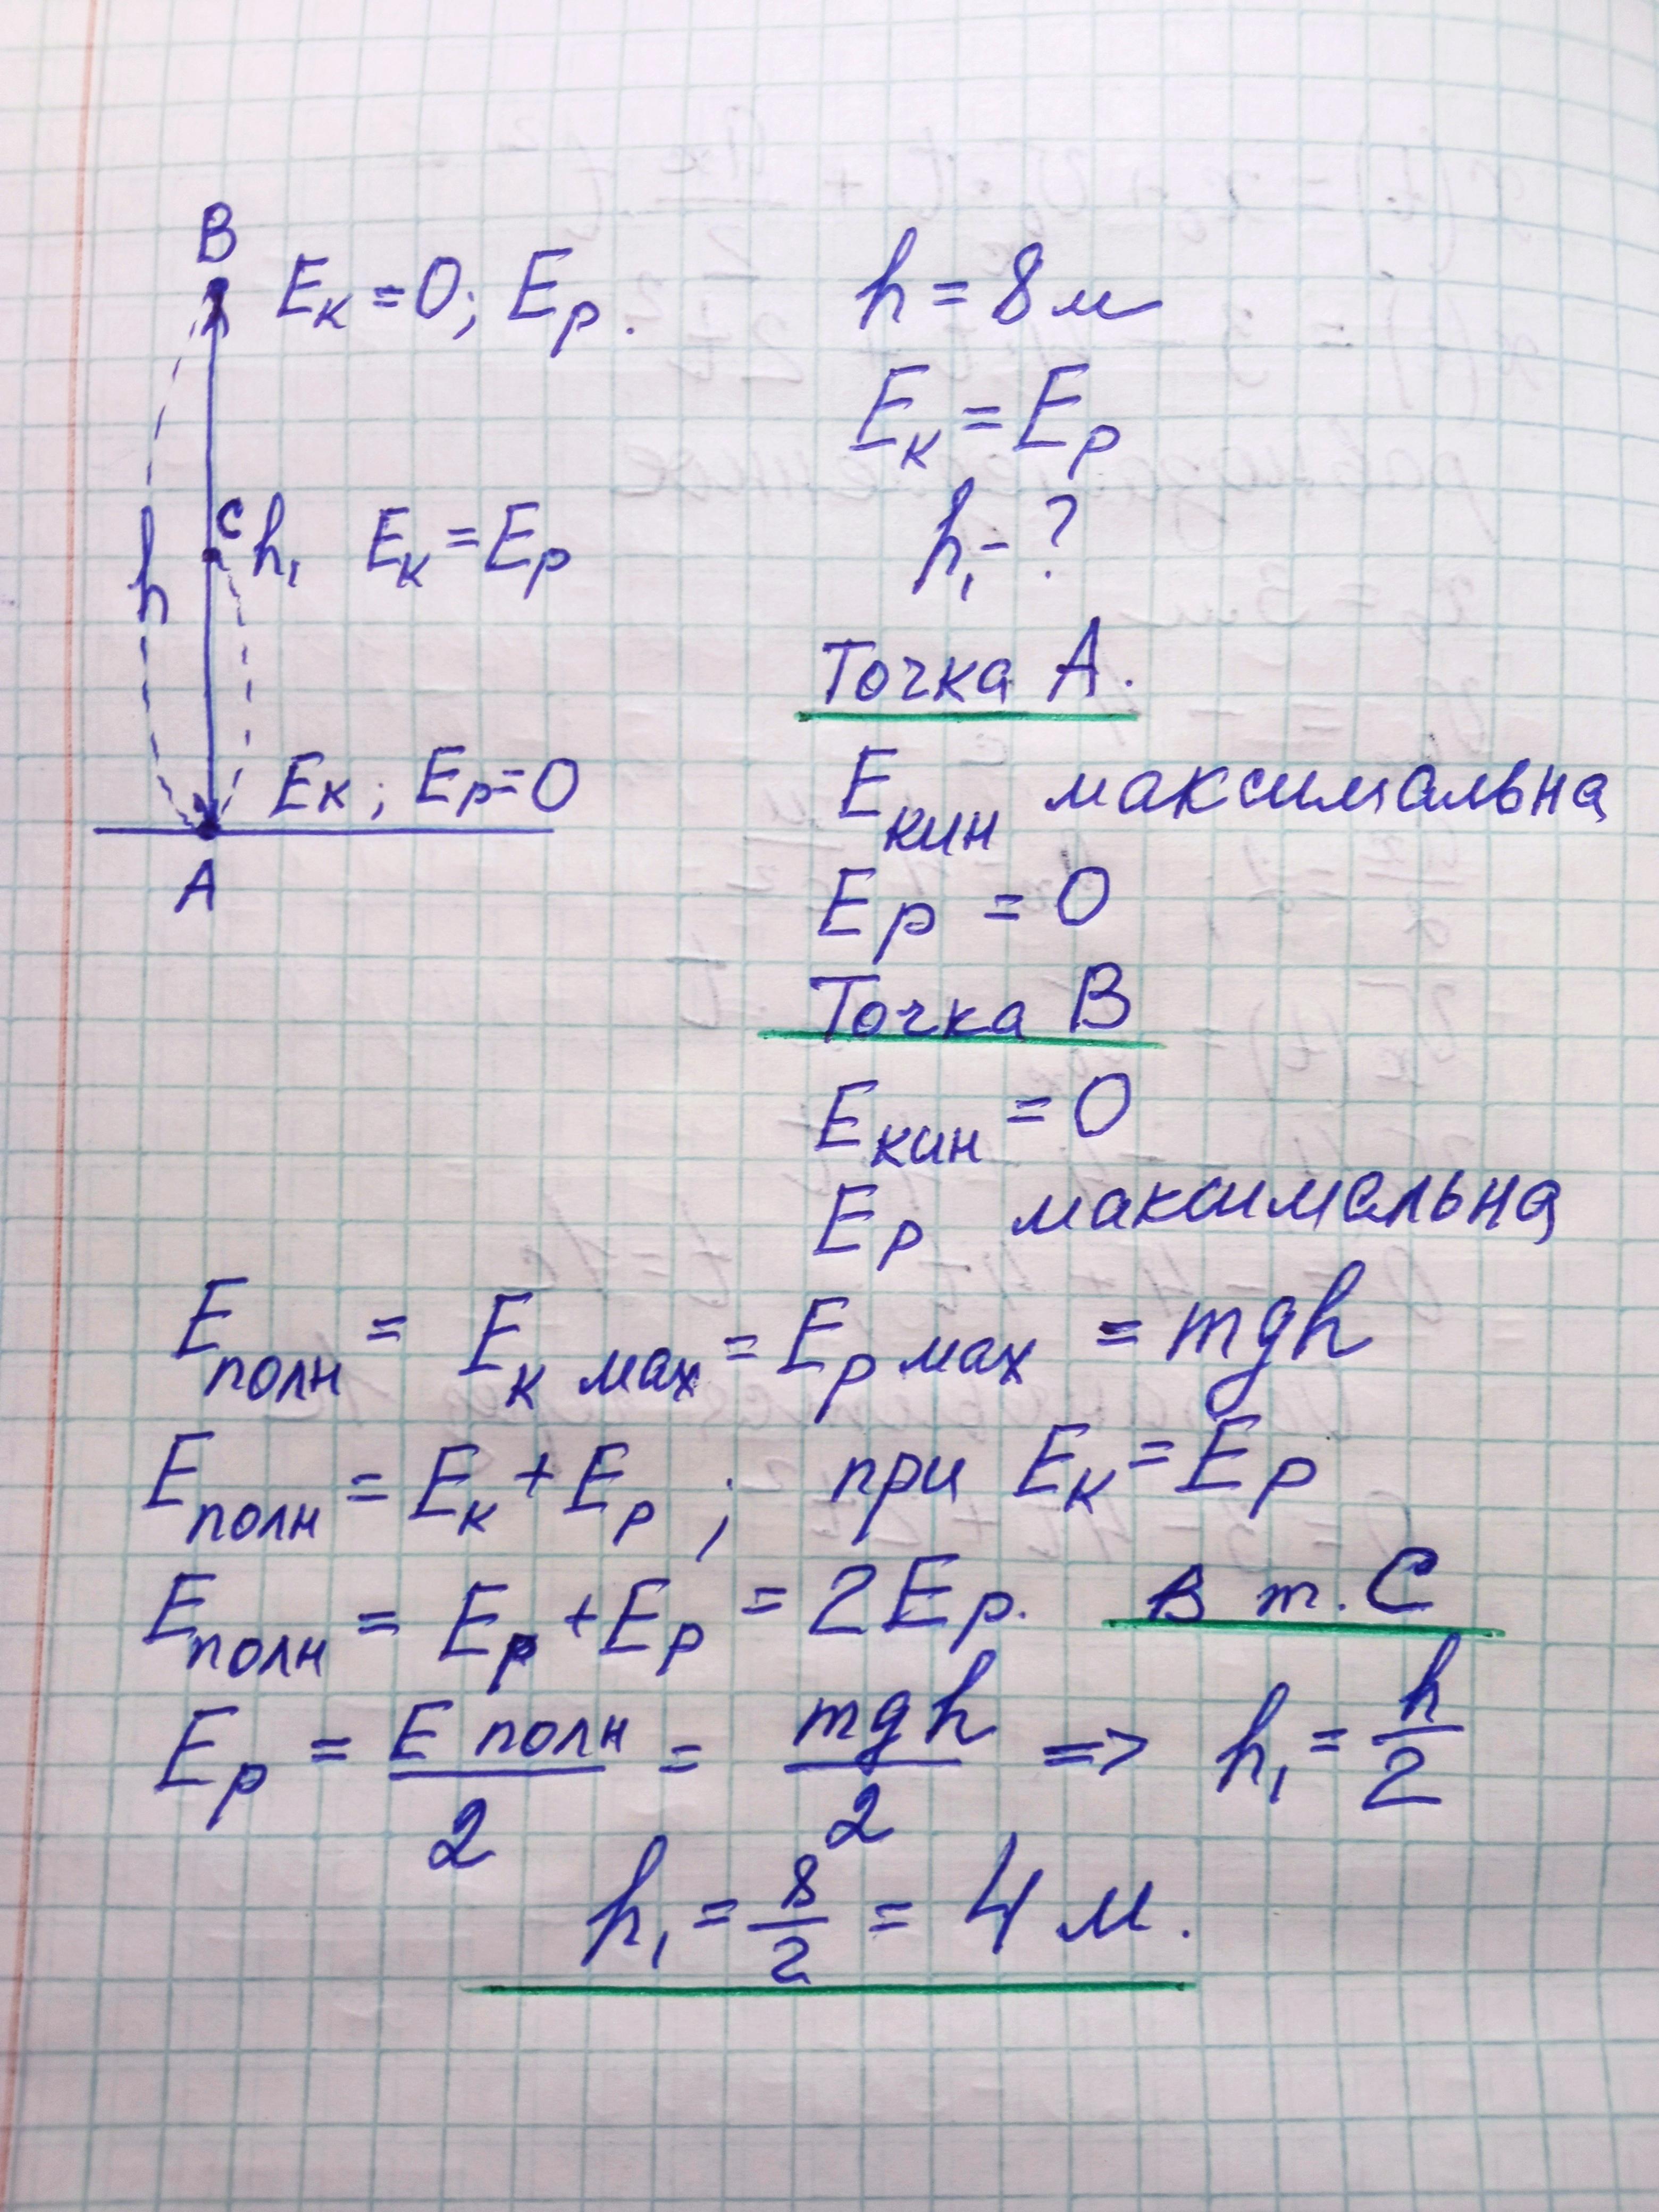 B
Eк = 0; Ep.
h = 8 м
Eк = Ep
h₁ - ?
C
h h₁ Eк = Ep
Eк ; Ep = 0
A
Точка A.
Eкин максимальна
Ep = 0
Точка B
Eкин = 0
Ep максимальна
Eполн = Eк мах = Ep мах = mgh
Eполн = Eк + Ep ; при Eк = Ep
Eполн = Ep + Ep = 2Ep. в т. C
Ep = E полн / 2 = mgh / 2 => h₁ = h / 2
h₁ = 8/2 = 4 м.